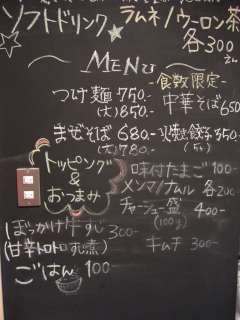 ソフトドリンク ラムネ/ウーロン茶
各300
MENU
-食数限定-
つけ麺 750- 中華そば650
(大)850-
まぜそば 680-
(大)780-
餃子350-
(5ヶ)
トッピング
&
おつまみ
味付たまご 100-
メンマ/ナムル 各200
チャーシュー盛 400-
(100g)
ぼっかけ牛すじ 300-
(甘辛トロトロすじ煮)
キムチ 300-
ごはん 100-